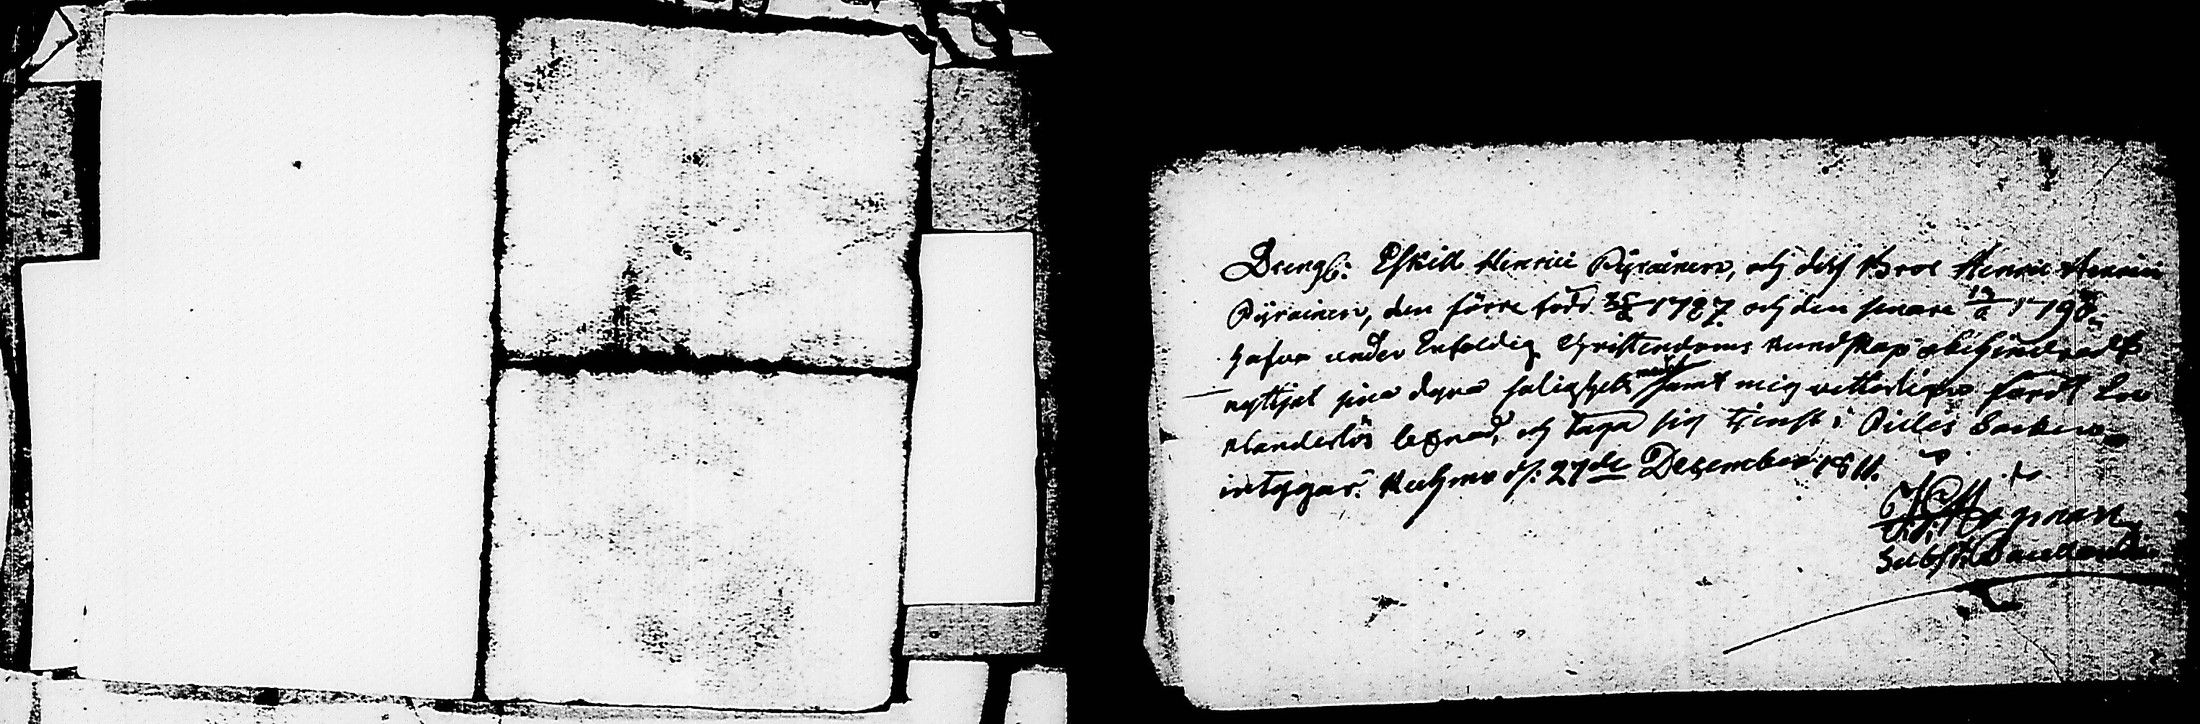 Drengs: Eskill Henrici Pyrainen, och dess Bror Henric Henrici
Pyrainen, den förre född 1787 och den senare 1798
hafva under Enfaldig Christendoms kundskap obehindradt
nyttjat sina dyra salighets medel samt mig vetterligen fördt En
klanderlös lefnad, och taga sig tjenst i Socken
intygar. Kuhmo d: 27de December 1811.